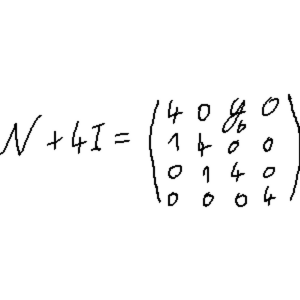 N + 4I = ( 4 0 0 0
1 4 0 0
0 1 4 0
0 0 0 4 )